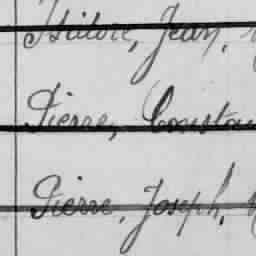 Isidore, Jean,
Pierre, Constan
Pierre, Joseph,